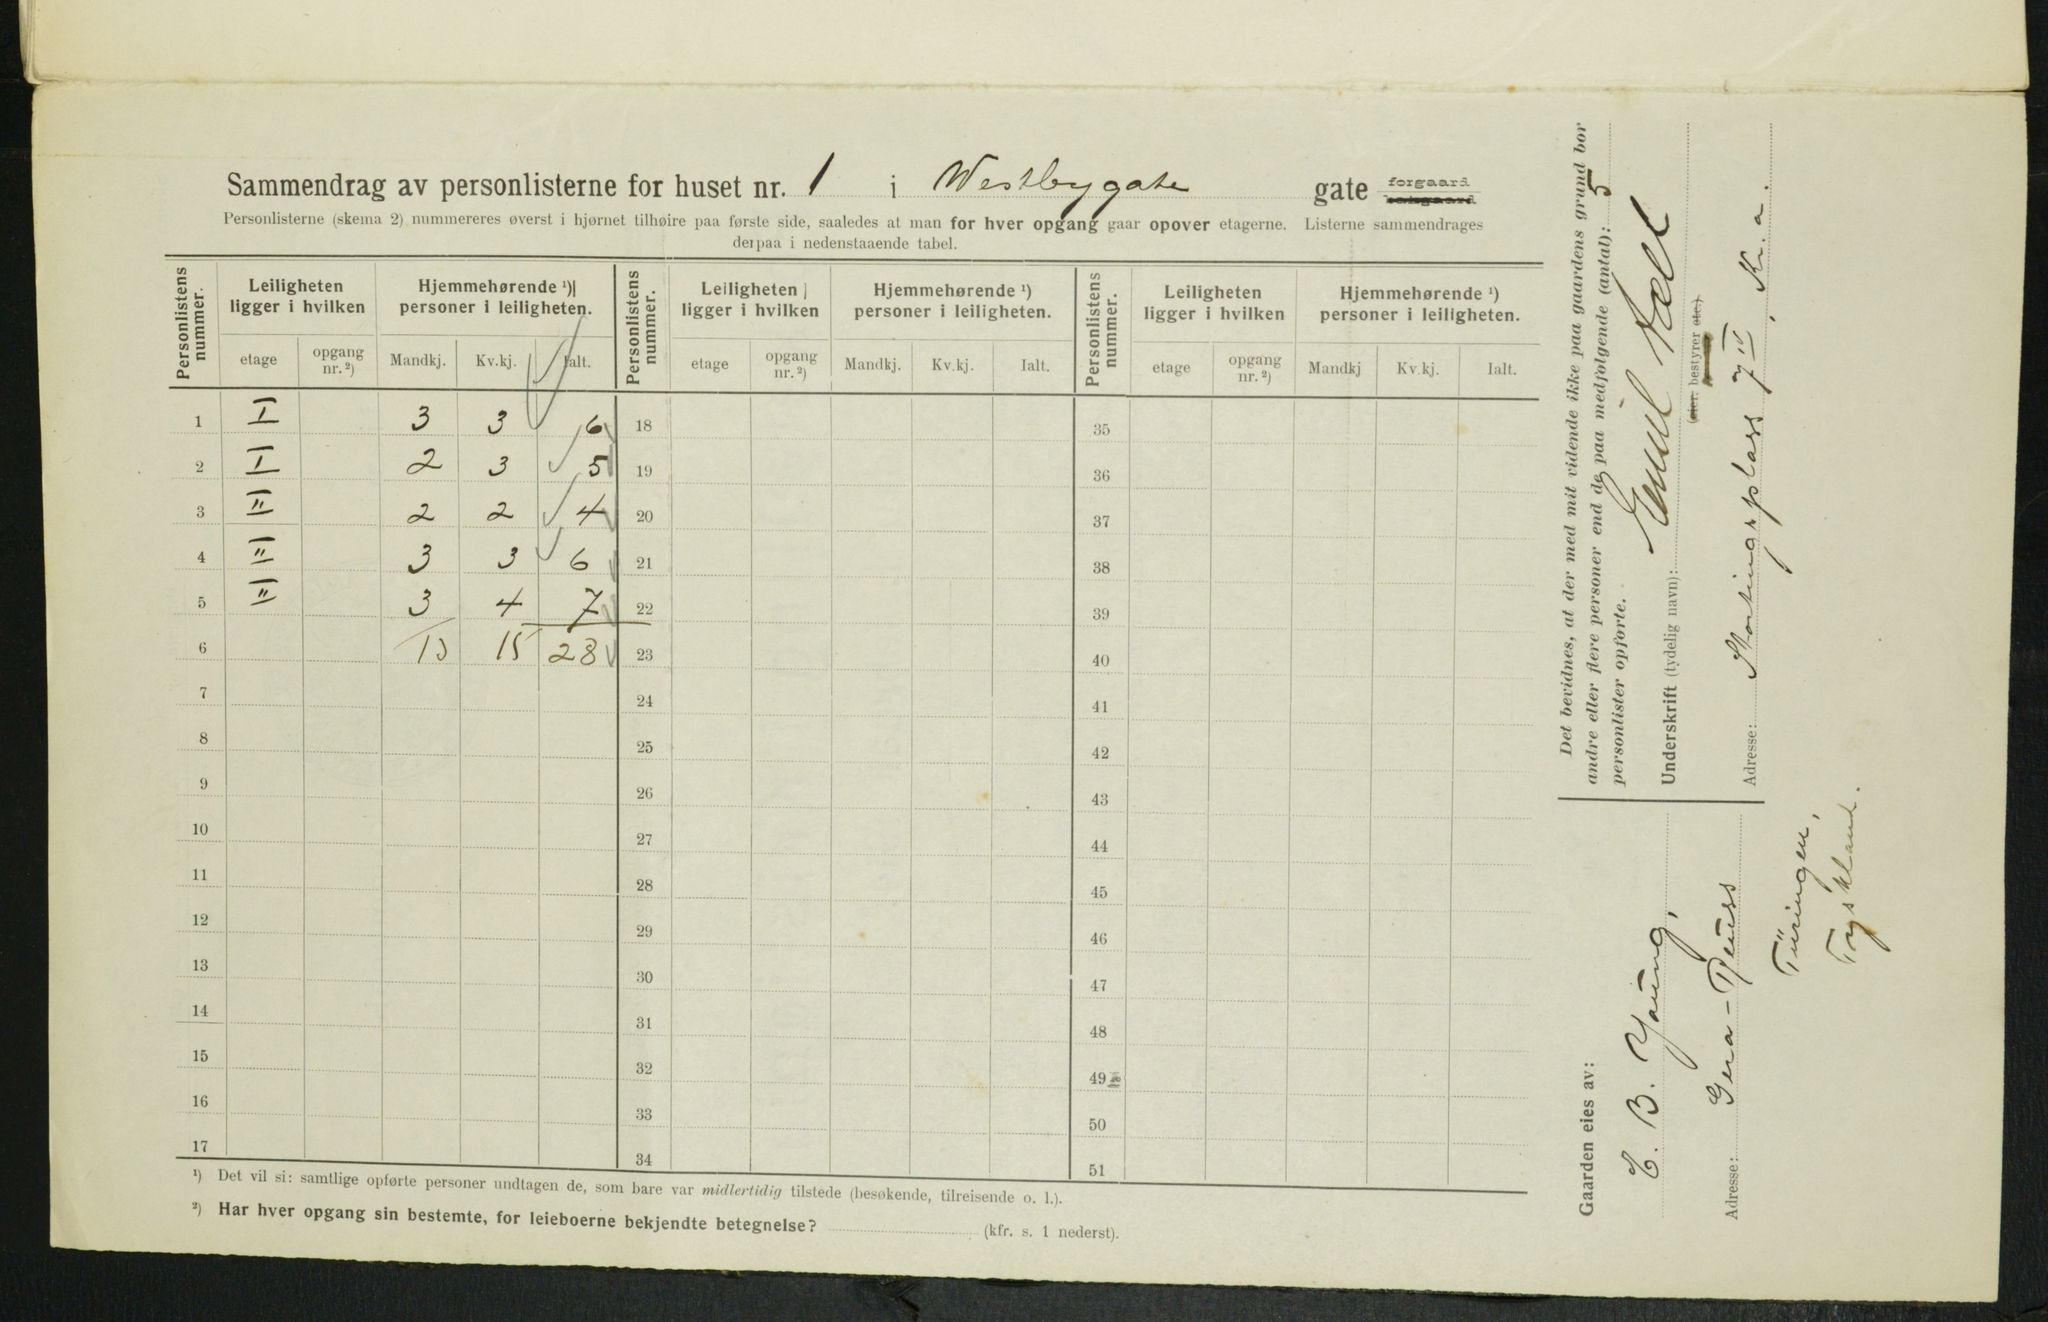 Sammendrag av personlisterne for huset nr. 1 i Westbygate gate forgaard
Personlisterne (skema 2) nummereres øverst i hjørnet tilhøire paa første side, saaledes at man for hver opgang gaar opover etagerne. Listerne sammendrages
derpaa i nedenstaaende tabel.
Personlistens nummer. Leiligheten ligger i hvilken Hjemmehørende ¹) personer i leiligheten. Personlistens nummer. Leiligheten ligger i hvilken Hjemmehørende ¹) personer i leiligheten. Personlistens nummer. Leiligheten ligger i hvilken Hjemmehørende ¹) personer i leiligheten.
etage opgang nr. ²) Mandkj. Kv.kj. Ialt. etage opgang nr. ²) Mandkj. Kv.kj. Ialt. etage opgang nr. ²) Mandkj Kv.kj. Ialt.
1 I 3 3 6 18 35
2 I 2 3 5 19 36
3 II 2 2 4 20 37
4 II 3 3 6 21 38
5 II 3 4 7 22 39
6 13 15 28 23 40
7 24 41
8 25 42
9 26 43
10 27 44
11 28 45
12 29 46
13 30 47
14 31 48
15 32 49
16 33 50
17 34 51
¹) Det vil si: samtlige opførte personer undtagen de, som bare var midlertidig tilstede (besøkende, tilreisende o. l.).
²) Har hver opgang sin bestemte, for leieboerne bekjendte betegnelse? (kfr. s. 1 nederst).
Det bevidnes, at der med mit vidende ikke paa gaardens grund bor
andre eller flere personer end de paa medfølgende (antal): 5
personlister opførte.
Underskrift (tydelig navn): Emil
(eier. bestyrer etc.)
Adresse: Stortingsplass 7 IV, Kr.a.
Gaarden eies av:
C. B. Yaung,
Adresse: Gera-Reuss
Türingen,
Tyskland.